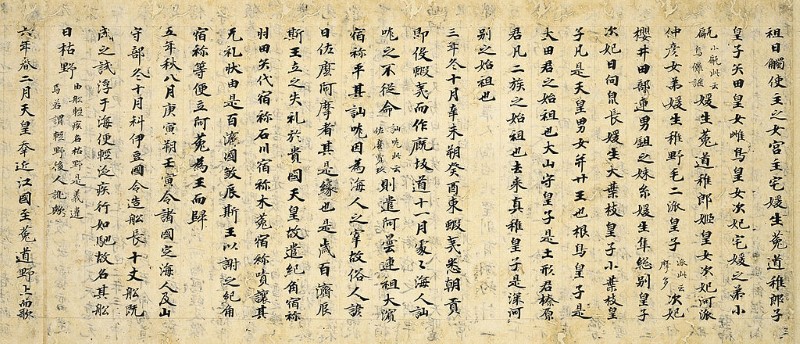 祖日觸使主之女宮主宅媛生菟道稚郎子
皇子矢田皇女雌鳥皇女次妃宅媛之弟小
甂小甂此云烏儺謎媛生菟道稚郎姬皇女次妃河派
仲彥女弟媛生稚野毛二派皇子派此云摩多次妃
櫻井田部連男鉏之妹糸媛生隼總別皇子
次妃日向泉長媛生大葉枝皇子小葉枝皇
子凡是天皇男女并廿王也根鳥皇子是
大田君之始祖也大山守皇子是土形君榛原
君凡二族之始祖也去来真稚皇子是深河
別之始祖也
三年冬十月辛未朔癸酉東蝦夷悉朝貢
即役蝦夷而作厩坂道十一月處々海人訕
哤之不從命訕哤此云佐麼賣玖則遣阿曇連祖大濱
宿祢平其訕哤因為海人之宰故俗人諺
曰佐麼阿摩者其是緣也是歲百濟辰
斯王立之失礼於貴國天皇故遣紀角宿祢
羽田矢代宿祢石川宿祢木菟宿祢嘖讓其
无礼狀由是百濟國敦辰斯王以謝之紀角
宿祢等便立阿菀為王而歸
五年秋八月庚寅朔壬寅令諸國定海人及山
守部冬十月科伊豆國令造舩長十丈舩既
成之試浮于海便輕泛疾行如馳故名其舩
曰枯野由舩輕疾名枯野是義違焉若謂輕野後人訛歟
六年春二月天皇幸近江國至菟道野上而歌